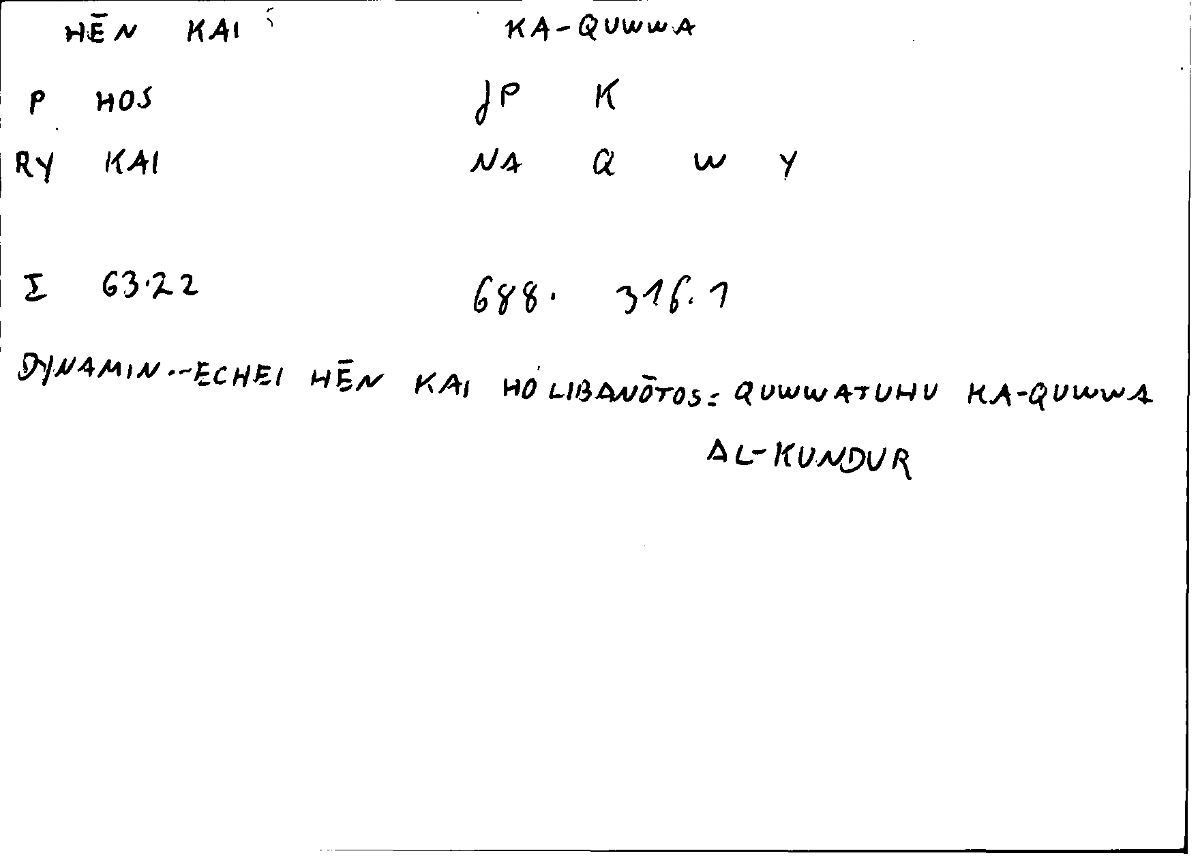 HĒN KAI KA-QUWWA
P HOS JP K
RY KAI NA Q W Y
Σ 63.22 688. 316.1
DYNAMIN.-ECHEI HĒN KAI HO LIBANŌTOS = QUWWATUHU KA-QUWWA
AL-KUNDUR